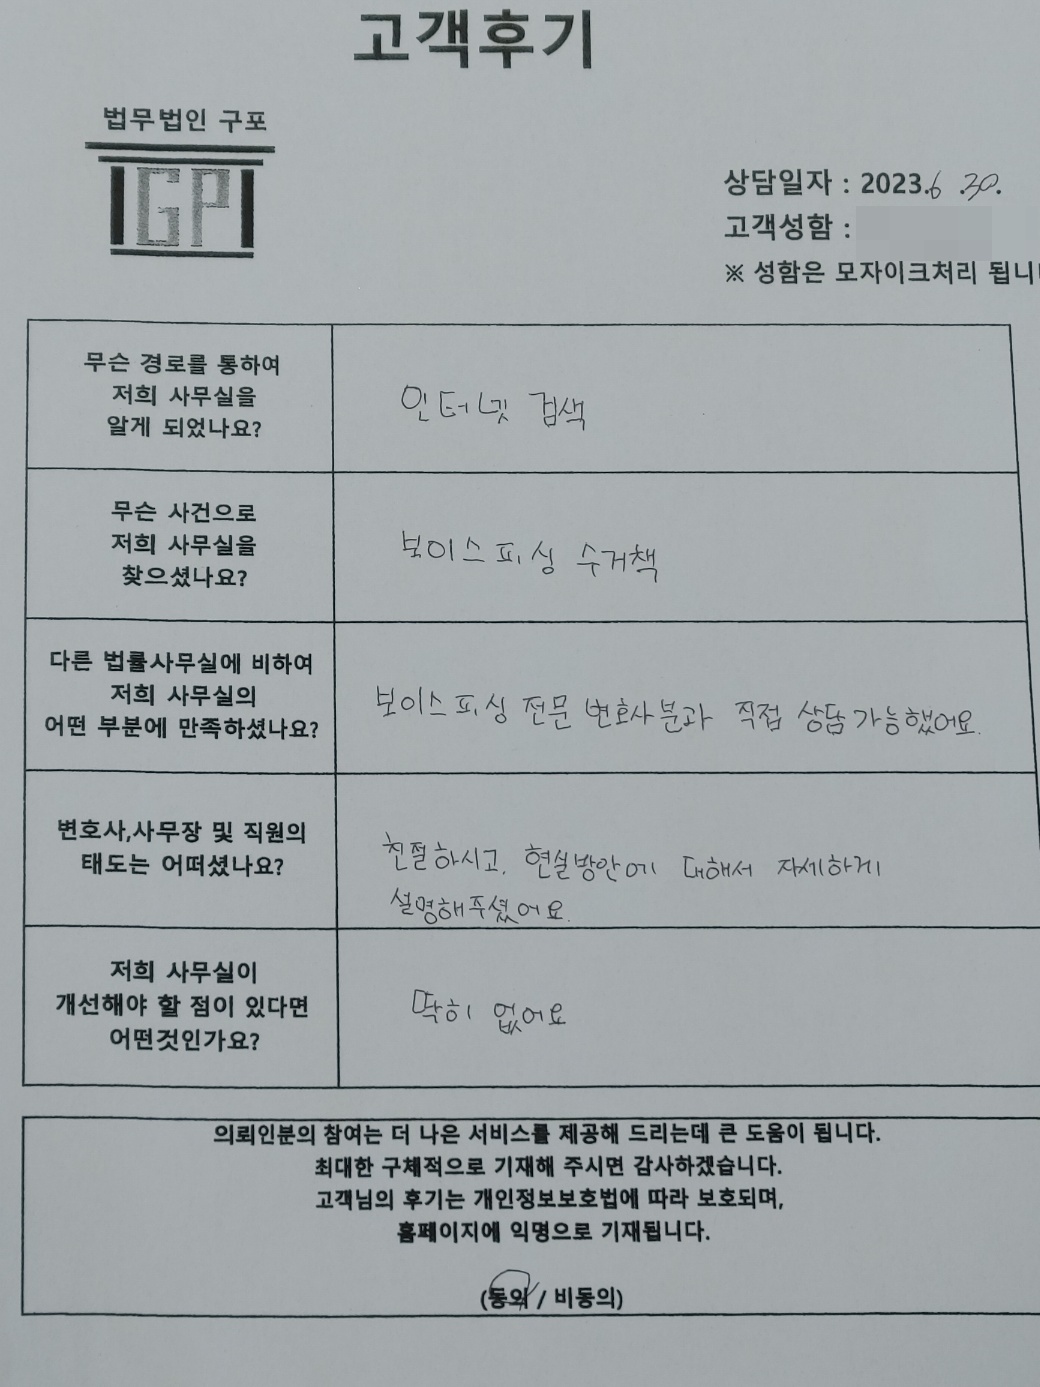 고객후기
법무법인 구포
GP
상담일자 : 2023.6.30.
고객성함 :
※ 성함은 모자이크처리 됩니
무슨 경로를 통하여
저희 사무실을
알게 되었나요?
인터넷 검색
무슨 사건으로
저희 사무실을
찾으셨나요?
보이스피싱 수거책
다른 법률사무실에 비하여
저희 사무실의
어떤 부분에 만족하셨나요?
보이스피싱 전문 변호사분과 직접 상담가능했어요.
변호사,사무장 및 직원의
태도는 어떠셨나요?
친절하시고, 현실방안에 대해서 자세하게
설명해주셨어요.
저희 사무실이
개선해야 할 점이 있다면
어떤것인가요?
딱히 없어요
의뢰인분의 참여는 더 나은 서비스를 제공해 드리는데 큰 도움이 됩니다.
최대한 구체적으로 기재해 주시면 감사하겠습니다.
고객님의 후기는 개인정보보호법에 따라 보호되며,
홈페이지에 익명으로 기재됩니다.
(동의 / 비동의)